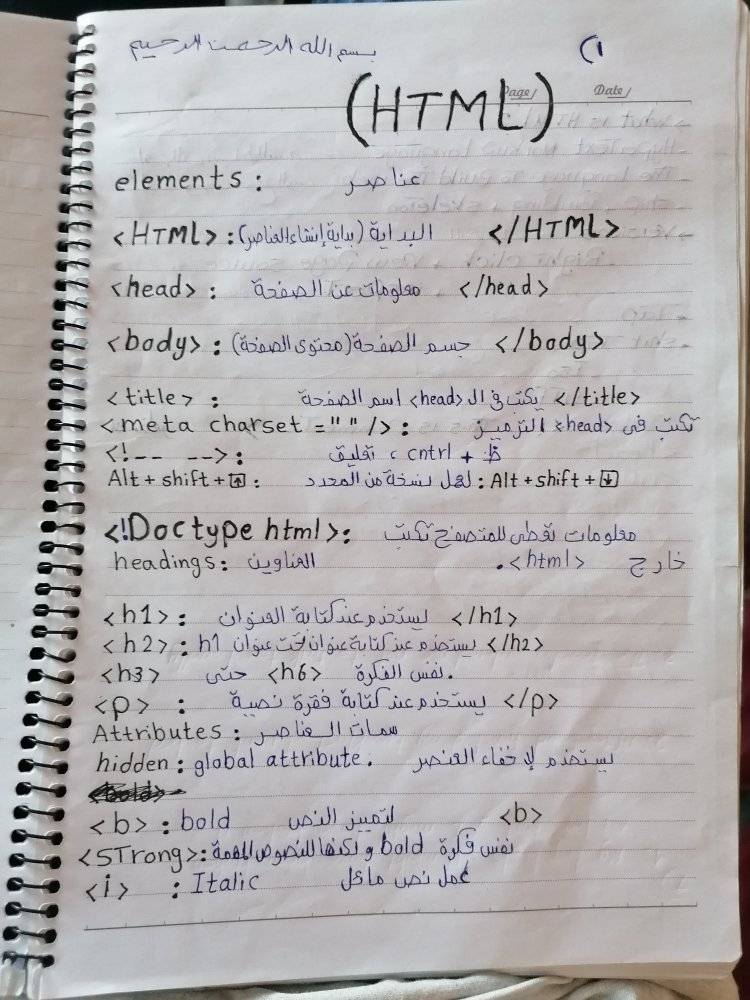 بسم الله الرحمن الرحيم
(1
Page/ Date/
(HTML)
elements : عناصر
<HTML> : البداية (بداية إنشاء العناصر) </HTML>
<head> : معلومات عن الصفحة </head>
<body> : جسم الصفحة (محتوى الصفحة) </body>
<title> : يكتب في ال <head> اسم الصفحة </title>
<meta charset = " " /> : تكتب فى <head> الترميز
<!-- --> : تعليق ، cntrl + ظ
Alt + shift + ↑ : لعمل نسخة من المحدد : Alt + shift + ↓
<!Doctype html> : معلومات تعطى للمتصفح تكتب
خارج <html>.
headings : العناوين
<h1> : يستخدم عند كتابة العنوان </h1>
<h2> : يستخدم عند كتابة عنوان تحت عنوان h1 </h2>
<h3> حتى <h6> نفس الفكرة.
<p> : يستخدم عند كتابة فقرة نصية </p>
Attributes : سمات العناصر
hidden : global attribute. يستخدم لإخفاء العنصر
<b> : bold لتمييز النص <b>
<STrong> : نفس فكرة bold ولكنها للنصوص المهمة
<i> : Italic عمل نص مائل